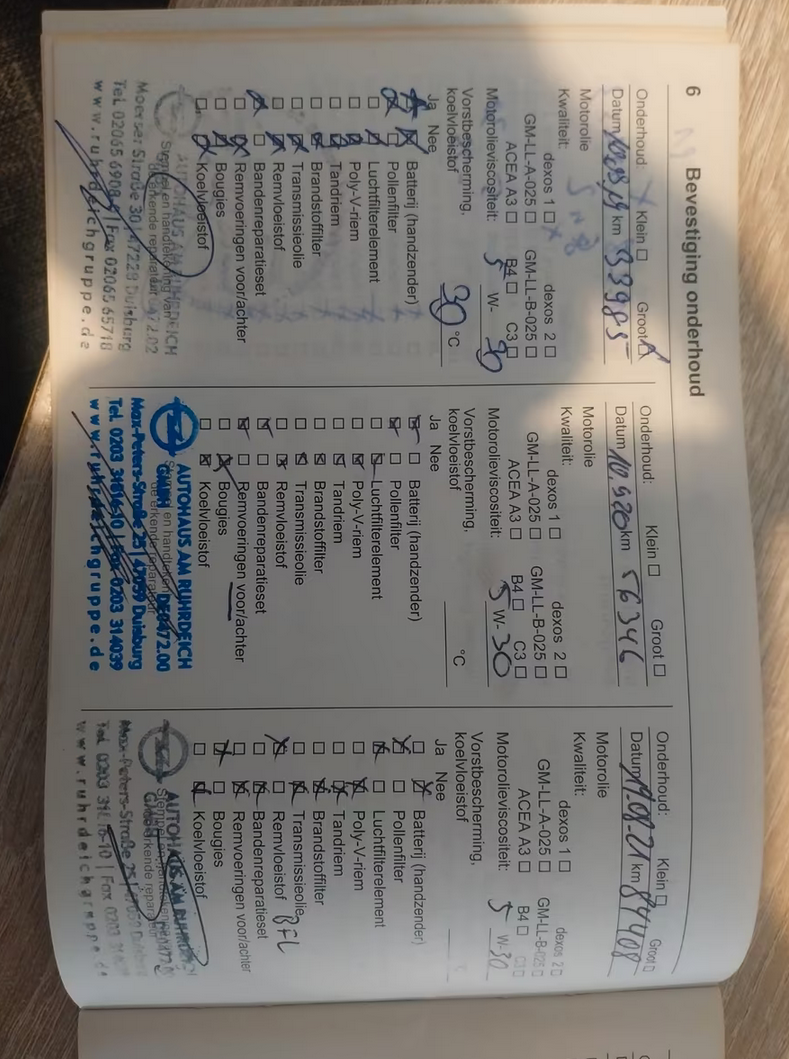 6 Bevestiging onderhoud
Onderhoud: Klein Groot
Datum km 53985
Motorolie
Kwaliteit: dexos 1 dexos 2
GM-LL-A-025 GM-LL-B-025
ACEA A3 B4 C3
Motorolieviscositeit: 5 W- 30
Vorstbescherming,
koelvloeistof 30 °C
Ja Nee
Batterij (handzender)
Pollenfilter
Luchtfilterelement
Poly-V-riem
Tandriem
Brandstoffilter
Transmissieolie
Remvloeistof
Bandenreparatieset
Remvoeringen voor/achter
Bougies
Koelvloeistof
AUTOHAUS AM RUHRDEICH
Moerser Straße 30 47228 Duisburg
Tel. 02065 6908 Fax 02065 65718
www.ruhrdeichgruppe.de
Onderhoud: Klein Groot
Datum 10.9.20 km 56346
Motorolie
Kwaliteit: dexos 1 dexos 2
GM-LL-A-025 GM-LL-B-025
ACEA A3 B4 C3
Motorolieviscositeit: 5 W- 30
Vorstbescherming,
koelvloeistof °C
Ja Nee
Batterij (handzender)
Pollenfilter
Luchtfilterelement
Poly-V-riem
Tandriem
Brandstoffilter
Transmissieolie
Remvloeistof
Bandenreparatieset
Remvoeringen voor/achter
Bougies
Koelvloeistof
AUTOHAUS AM RUHRDEICH
GmbH
Max-Peters-Straße 25 | 47059 Duisburg
Tel. 0203 | Fax 0203 314039
www.ruhrdeichgruppe.de
Onderhoud: Klein Groot
Datum 11.08.21 km 84408
Motorolie
Kwaliteit: dexos 1 dexos 2
GM-LL-A-025 GM-LL-B-025
ACEA A3 B4 C3
Motorolieviscositeit: 5 W-30
Vorstbescherming,
koelvloeistof
Ja Nee
Batterij (handzender)
Pollenfilter
Luchtfilterelement
Poly-V-riem
Tandriem
Brandstoffilter
Transmissieolie
Remvloeistof BFL
Bandenreparatieset
Remvoeringen voor/achter
Bougies
Koelvloeistof
AUTOHAUS AM RUHRDEICH
Max-Peters-Straße 25 Duisburg
Tel. 0203 | Fax 0203